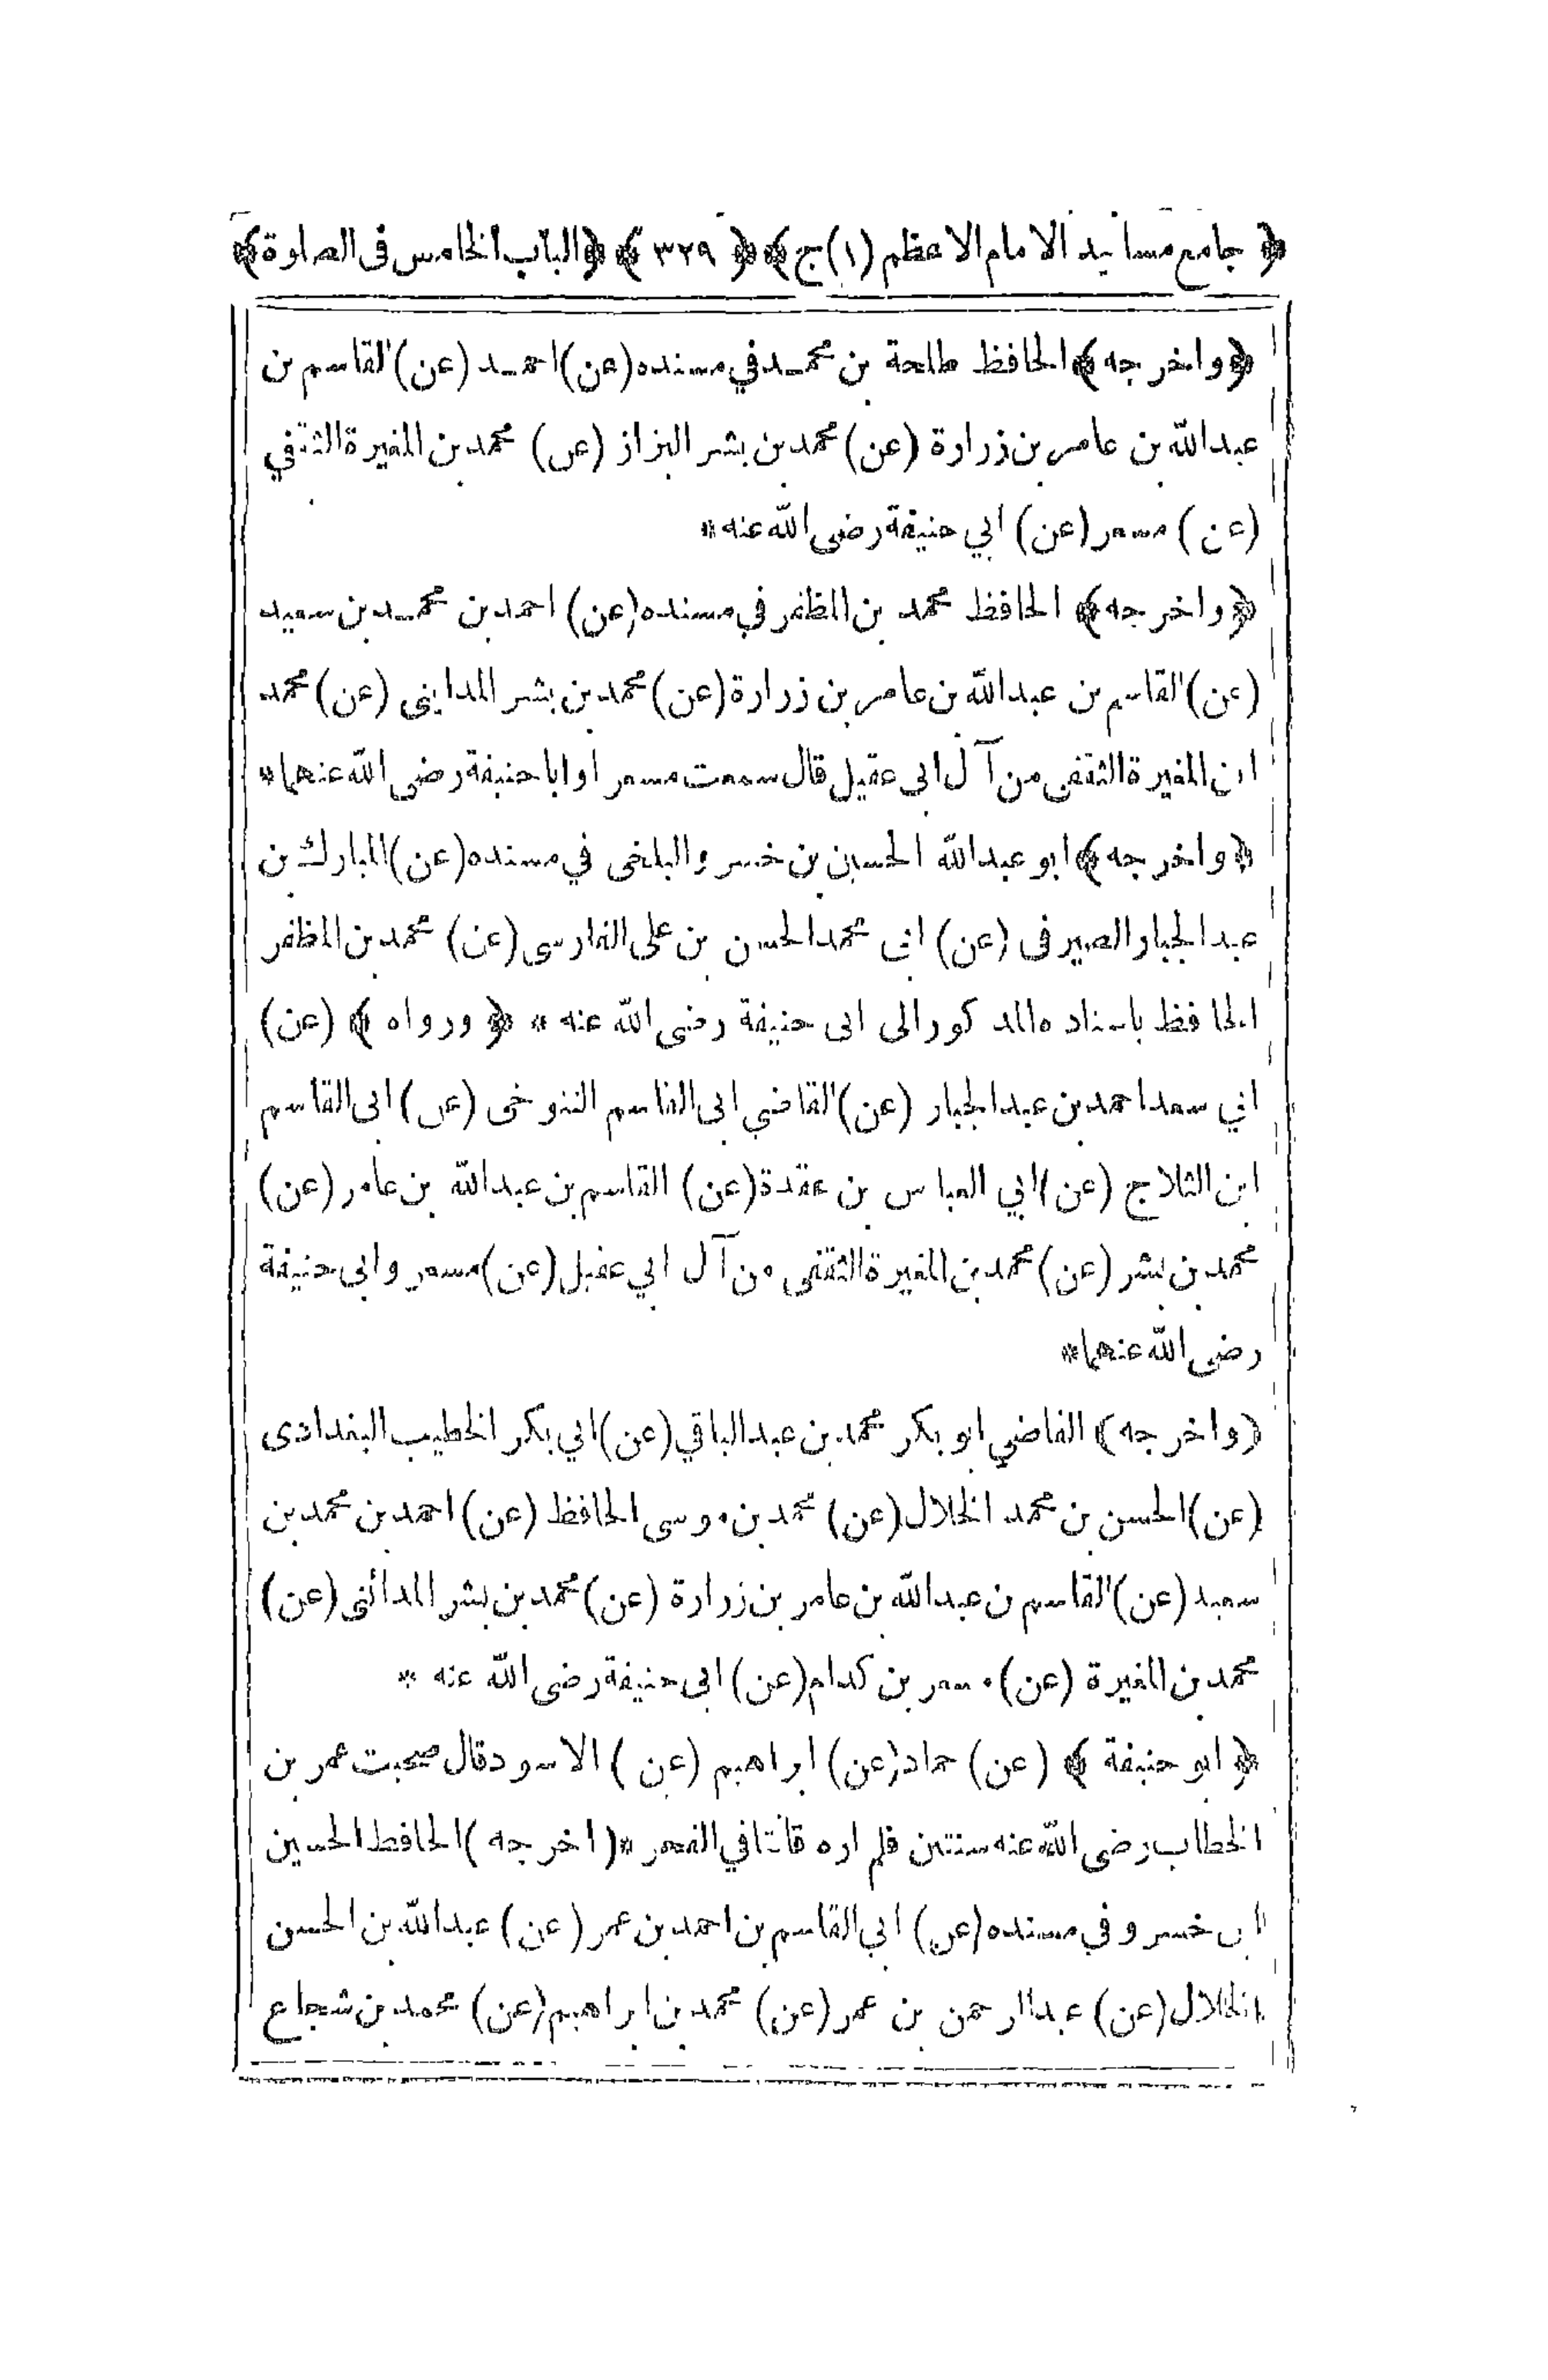 ﴿ جامع مسانيد الامام الاعظم (١) ج ﴾ ﴿ ٣٢٩ ﴾ ﴿ الباب الخامس فى الصلوة ﴾
﴿ واخرجه ﴾ الحافظ طلحة بن محمد في مسنده (عن) احمد (عن) القاسم بن
عبد الله بن عامر بن زرارة (عن) محمد بن بشر البزاز (عن) محمد بن المغيرة الثقفي
(عن) مسعر (عن) ابي حنيفة رضى الله عنه *
﴿ واخرجه ﴾ الحافظ محمد بن المظفر في مسنده (عن) احمد بن محمد بن سعيد
(عن) القاسم بن عبد الله بن عامر بن زرارة (عن) محمد بن بشر المدايني (عن) محمد
ابن المغيرة الثقفى من آل ابى عقيل قال سمعت مسعر اوابا حنيفة رضى الله عنهما *
﴿ واخرجه ﴾ ابو عبد الله الحسين بن خسرو البلخى في مسنده (عن) المبارك بن
عبد الجبار الصيرفى (عن) ابى محمد الحسن بن على الفارسى (عن) محمد بن المظفر
الحافظ باسناده المذكور الى ابى حنيفة رضى الله عنه * ﴿ ورواه ﴾ (عن)
ابي سعد احمد بن عبد الجبار (عن) القاضي ابى القاسم التنوخى (عن) ابى القاسم
ابن الثلاج (عن) ابي العباس بن عقدة (عن) القاسم بن عبد الله بن عامر (عن)
محمد بن بشر (عن) محمد بن المغيرة الثقفى من آل ابي عقيل (عن) مسعر وابى حنيفة
رضى الله عنهما *
﴿ واخرجه ﴾ القاضي ابو بكر محمد بن عبد الباقي (عن) ابي بكر الخطيب البغدادى
(عن) الحسن بن محمد الخلال (عن) محمد بن موسى الحافظ (عن) احمد بن محمد بن
سعيد (عن) القاسم بن عبد الله بن عامر بن زرارة (عن) محمد بن بشر المدائنى (عن)
محمد بن المغيرة (عن) مسعر بن كدام (عن) ابى حنيفة رضى الله عنه *
﴿ ابو حنيفة ﴾ (عن) حماد (عن) ابراهيم (عن) الاسود قال صحبت عمر بن
الخطاب رضى الله عنه سنتين فلم اره قانتا في الفجر * (اخرجه) الحافظ الحسين
ابن خسرو في مسنده (عن) ابي القاسم بن احمد بن عمر (عن) عبد الله بن الحسن
الخلال (عن) عبد الرحمن بن عمر (عن) محمد بن ابراهيم (عن) محمد بن شجاع